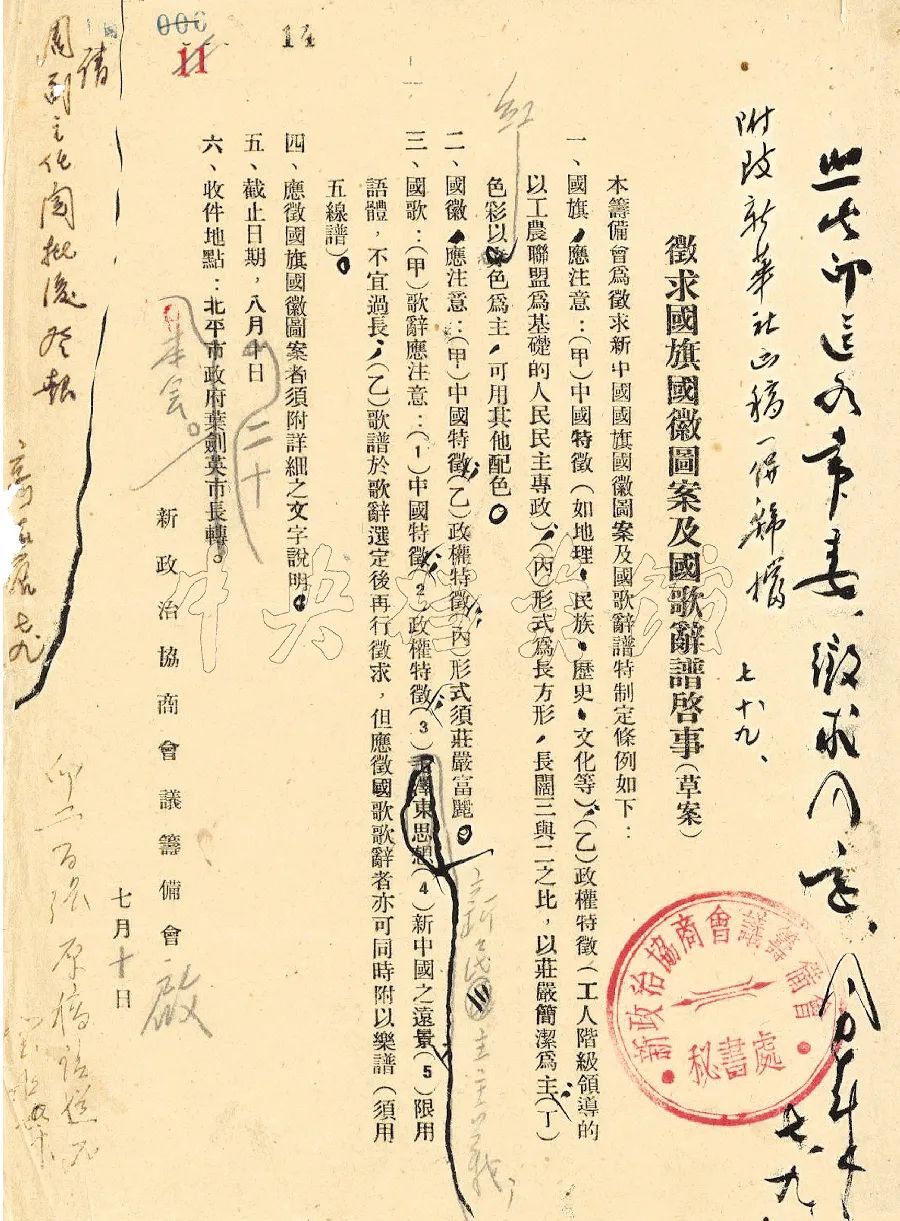 此即送各常委，徵求同意，周恩来
七、九、
附改新華社正稿一併歸檔
七、十九、
徵求國旗國徽圖案及國歌辭譜啓事（草案）
本籌備會爲徵求新中國國旗國徽圖案及國歌辭譜特制定條例如下：
一、國旗，應注意：（甲）中國特徵（如地理、民族、歷史、文化等）；（乙）政權特徵（工人階級領導的
以工農聯盟爲基礎的人民民主專政）；（丙）形式爲長方形，長闊三與二之比，以莊嚴簡潔爲主；（丁）
色彩以紅色爲主，可用其他配色。
二、國徽，應注意：（甲）中國特徵；（乙）政權特徵；（丙）形式須莊嚴富麗。
三、國歌：（甲）歌辭應注意：（1）中國特徵；（2）政權特徵；（3）毛澤東思想（4）新中國之遠景；（5）限用
新民主主義；
語體，不宜過長；（乙）歌譜於歌辭選定後再行徵求，但應徵國歌歌辭者亦可同時附以樂譜（須用
五線譜）。
四、應徵國旗國徽圖案者須附詳細之文字說明。
五、截止日期，八月十日
二十
六、收件地點：北平市政府葉劍英市長轉。
本會。
新政治協商會議籌備會
啟
七月十日
請
周副主任閱批後發報
七九
印二百張 原稿請退
000
11
14
新政治協商會議籌備會
秘書處
中央檔案館